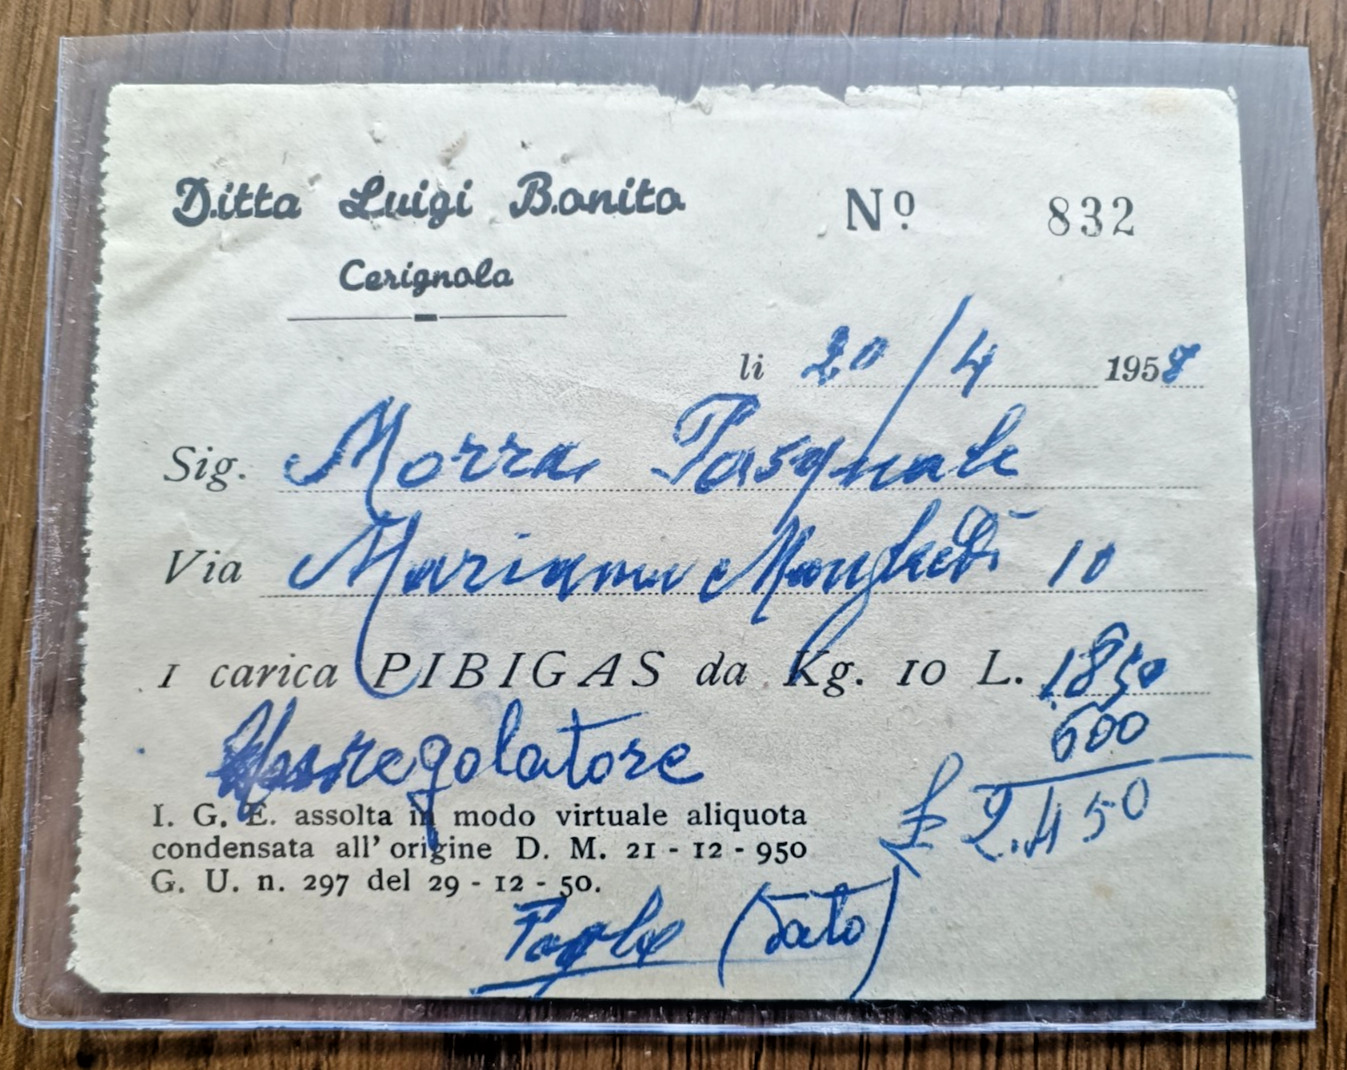 Ditta Luigi Bonito
Nº 832
Cerignola
li 20/4 1958
Sig. Morra Pasquale
Via Mariano Manfredi 10
1 carica PIBIGAS da Kg. 10 L. 1850
600
regolatore
£ 2.450
I. G. E. assolta in modo virtuale aliquota
condensata all' origine D. M. 21 - 12 - 950
G. U. n. 297 del 29 - 12 - 50.